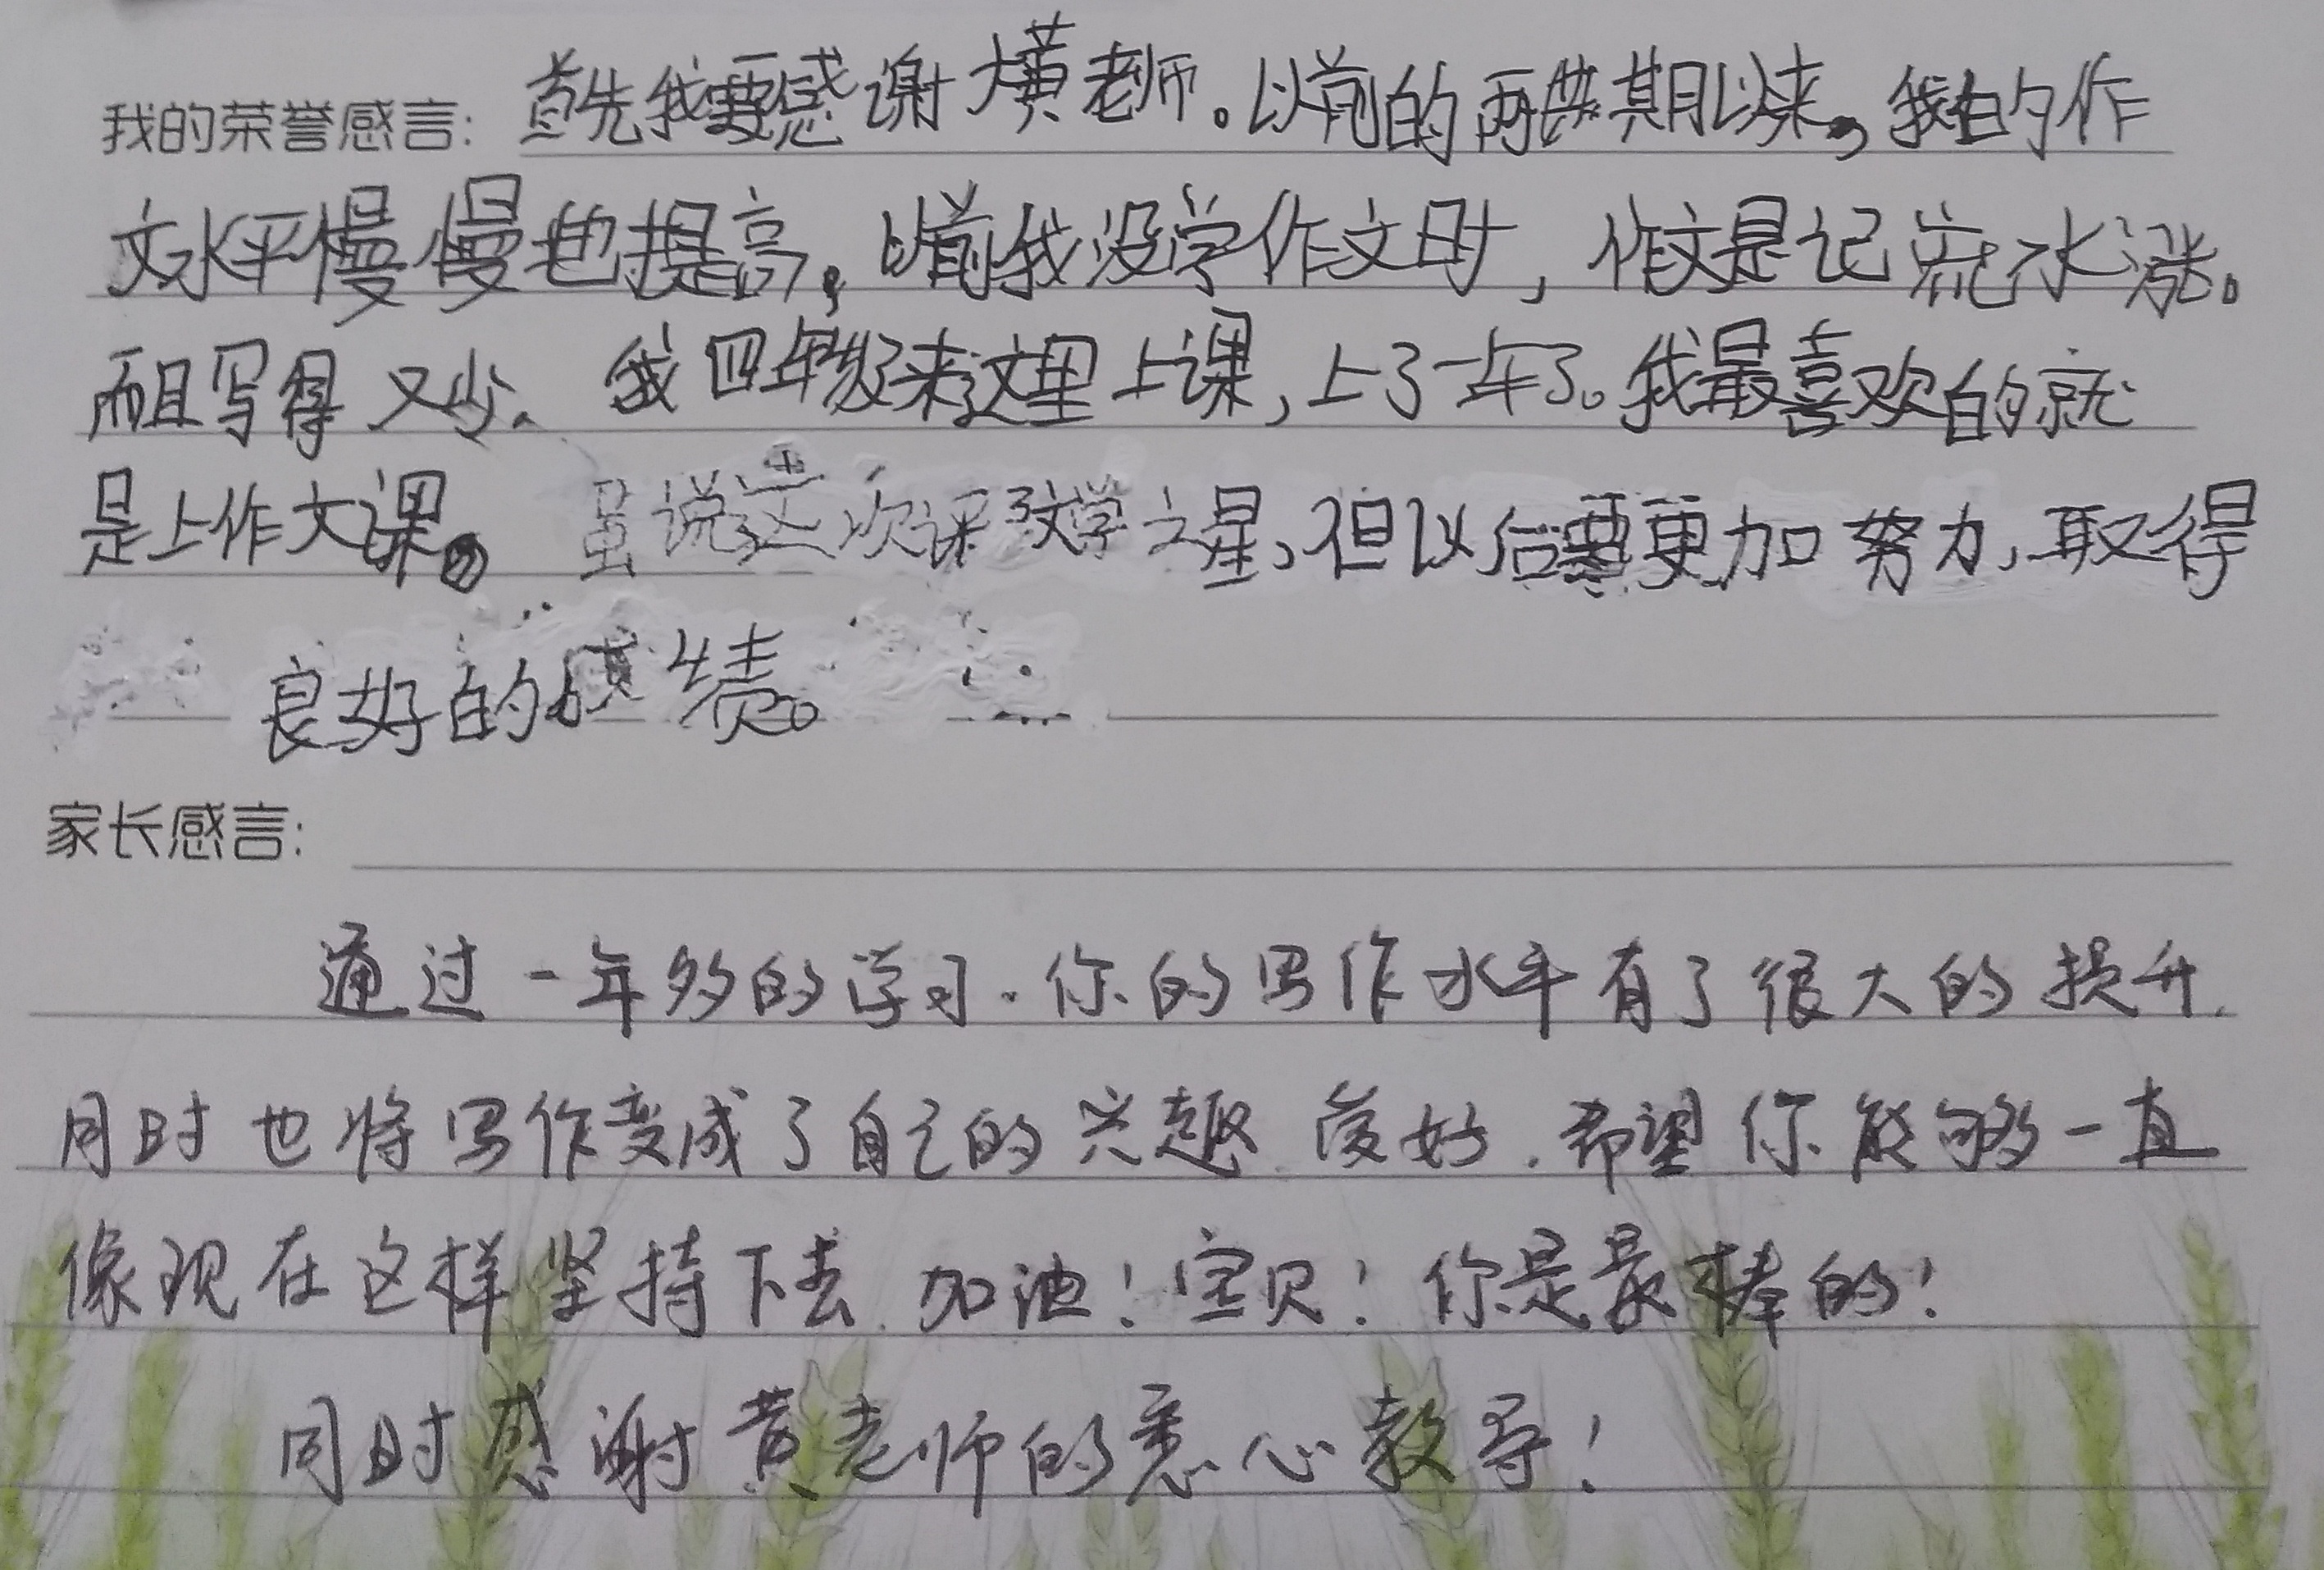 我的荣誉感言：首先我要感谢横老师。以前的两期以来，我的作
文水平慢慢也提高，以前我没学作文时，作文是记流水涨。
而且写得又少。我四年级来这里上课，上了一年了。我最喜欢的就
是上作文课。虽说这次课文学之星，但以后要更加努力，取得
良好的成绩。
家长感言：
通过一年多的学习，你的写作水平有了很大的提升，
同时也将写作变成了自己的兴趣爱好，希望你能够一直
像现在这样坚持下去，加油！宝贝！你是最棒的！
同时感谢黄老师的悉心教导！